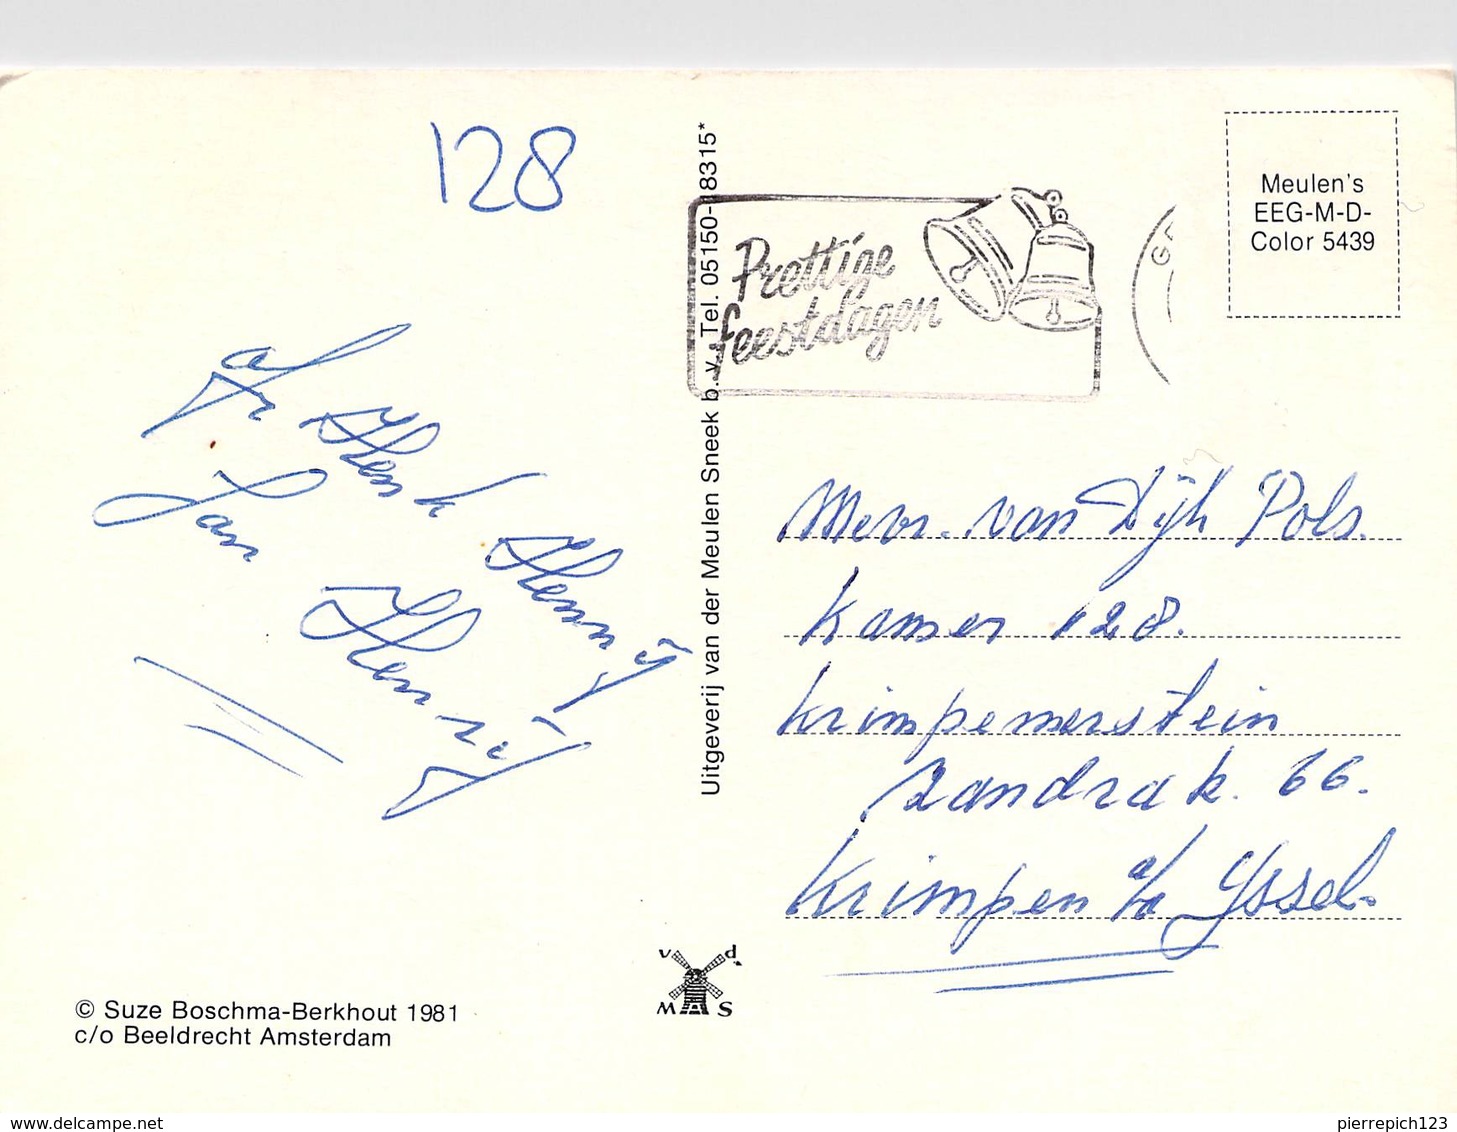 128
afz
Henk Hennij
Jan Hennij
© Suze Boschma-Berkhout 1981
c/o Beeldrecht Amsterdam
Uitgeverij van der Meulen Sneek b.v. Tel. 05150-18315*
v d.
M S
Prettige
feestdagen
G
Meulen's
EEG-M-D-
Color 5439
Mevr. van Dijk Pols.
Kamer 128.
Krimpenerstein
Zandrak. 66.
Krimpen a/d Yssel.
delcampe.net
pierrepich123